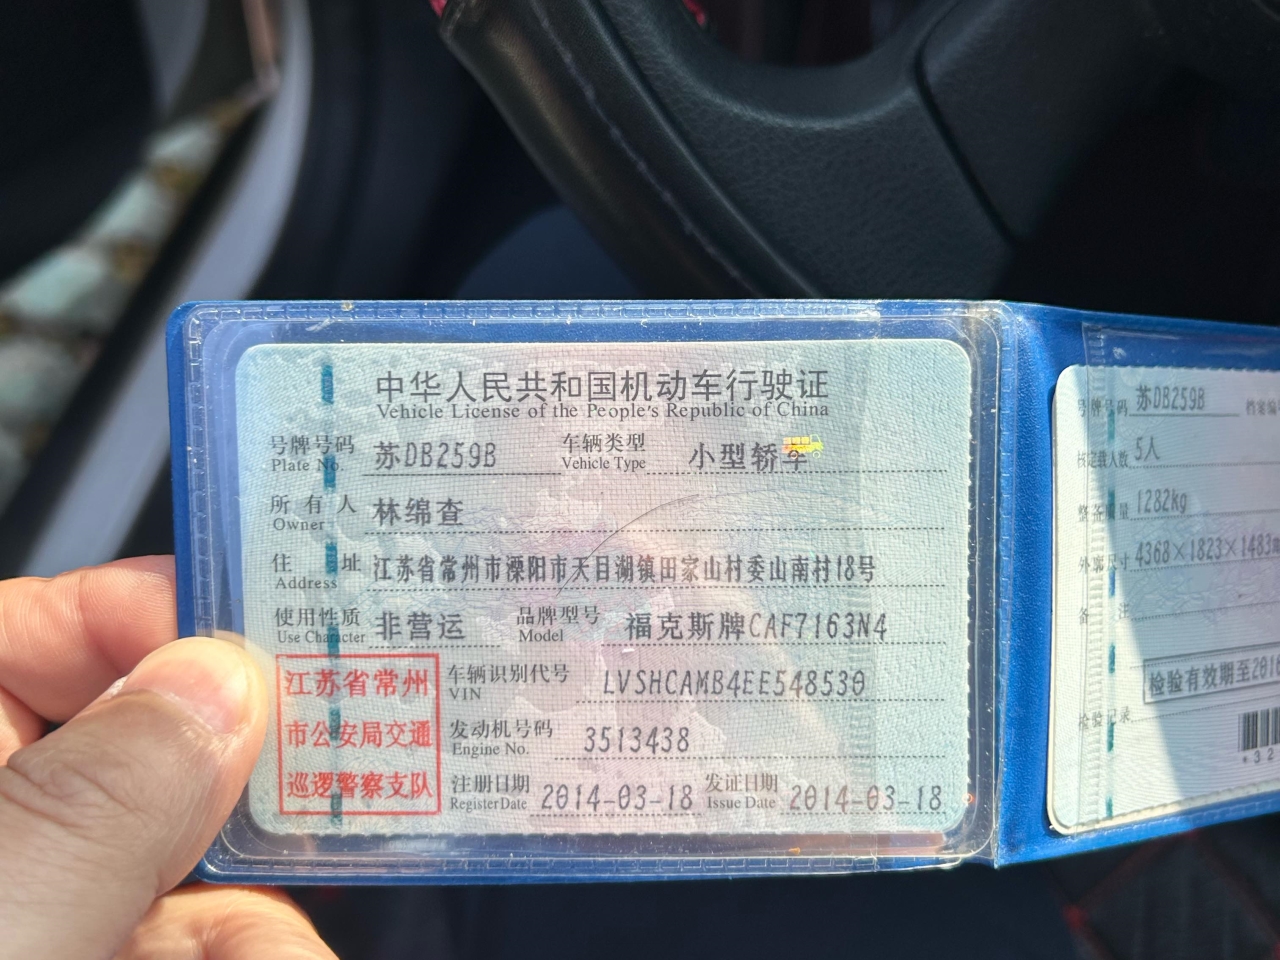 中华人民共和国机动车行驶证
Vehicle License of the People's Republic of China
号牌号码 苏DB259B 车辆类型 小型轿车
Plate No. Vehicle Type
所有人 林绵查
Owner
住址 江苏省常州市溧阳市天目湖镇田家山村委山南村18号
Address
使用性质 非营运 品牌型号 福克斯牌CAF7163N4
Use Character Model
江苏省常州
市公安局交通
巡逻警察支队
车辆识别代号 LVSHCAMB4EE548530
VIN
发动机号码 3513438
Engine No.
注册日期 2014-03-18 发证日期 2014-03-18
Register Date Issue Date
号牌号码 苏DB259B 档案编
核定载人数 5人
整备质量 1282kg
外廓尺寸 4368×1823×1483m
备注
检验有效期至201
检验记录
*32